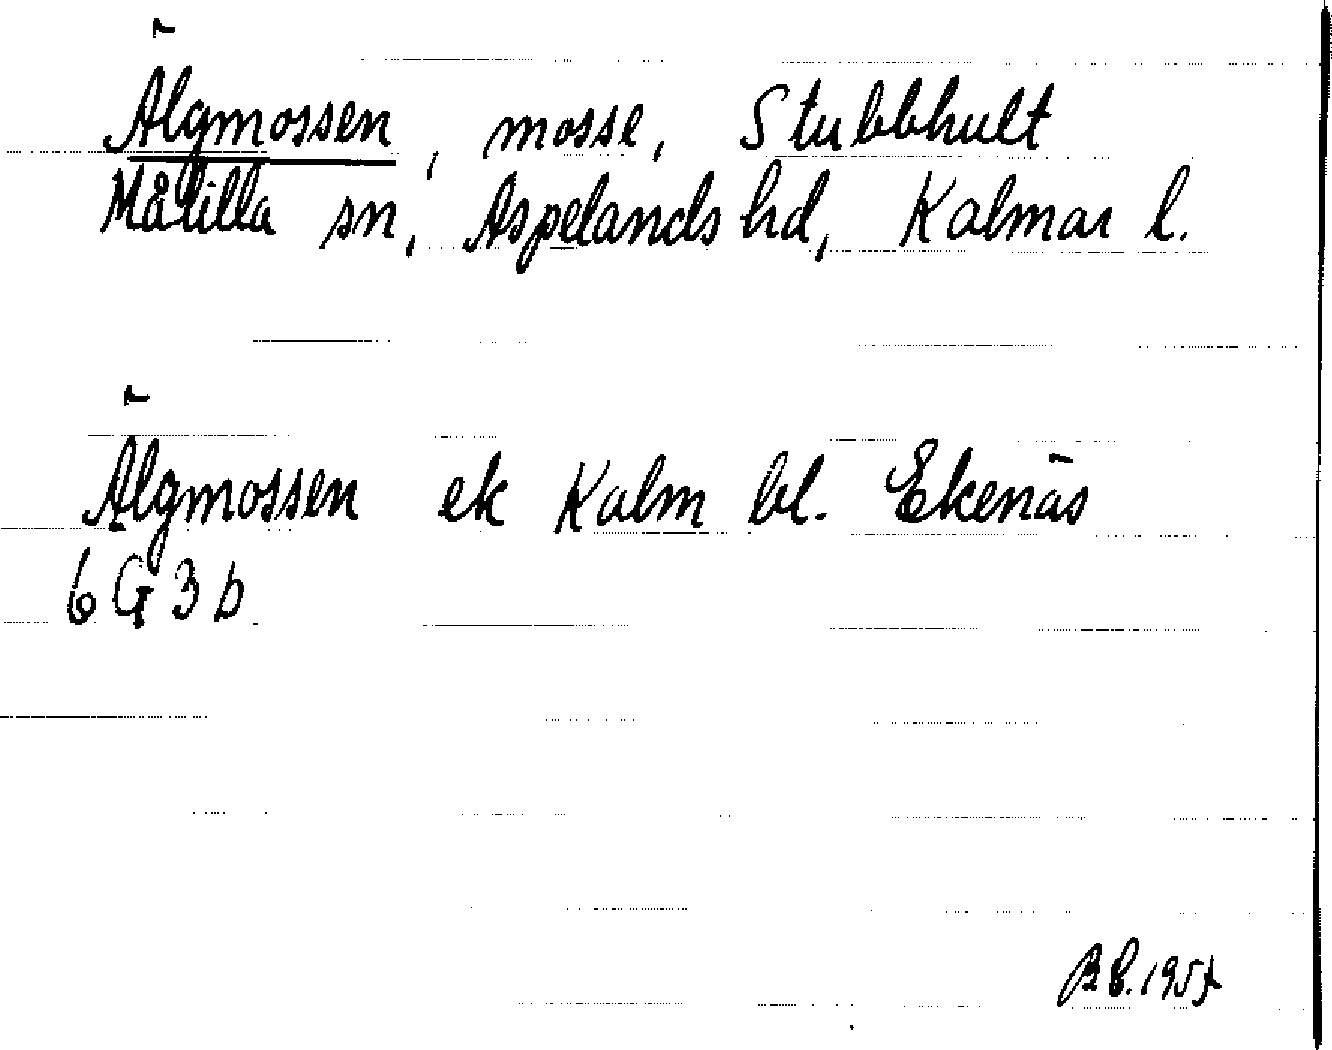 Älgmossen, mosse, Stubbhult
Målilla sn, Aspelands hd, Kalmar l.
Älgmossen ek Kalm bl. Ekenäs
6G3b